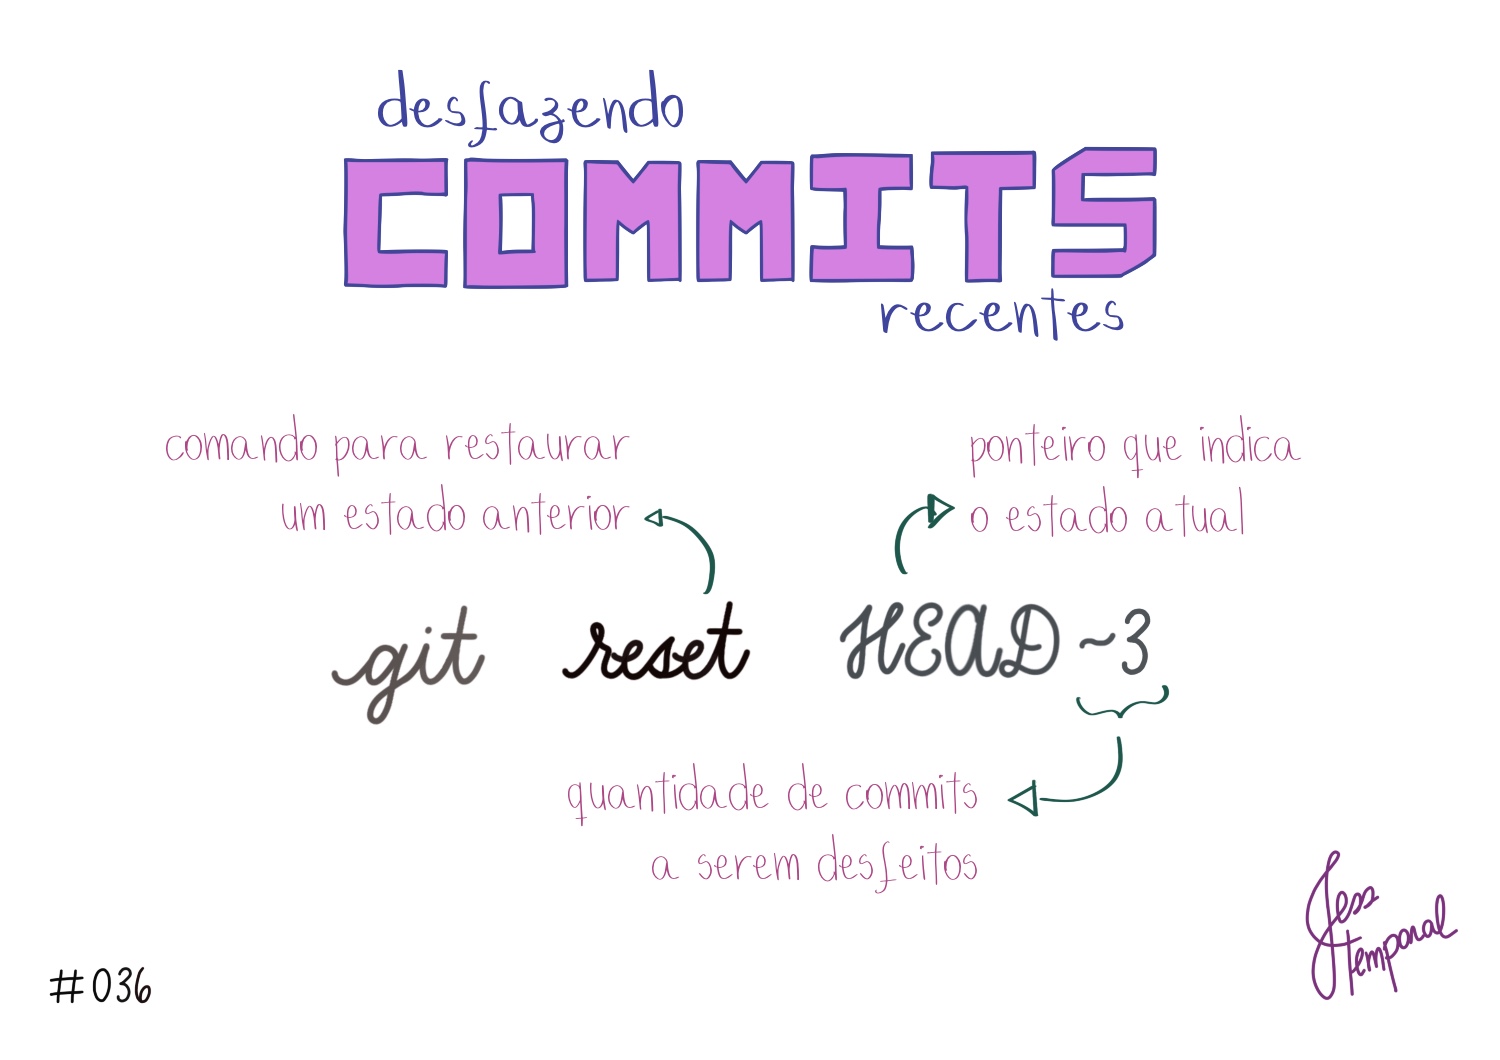 desfazendo
COMMITS
recentes
comando para restaurar
um estado anterior
ponteiro que indica
o estado atual
git reset HEAD ~3
quantidade de commits
a serem desfeitos
Jess
temporal
#036